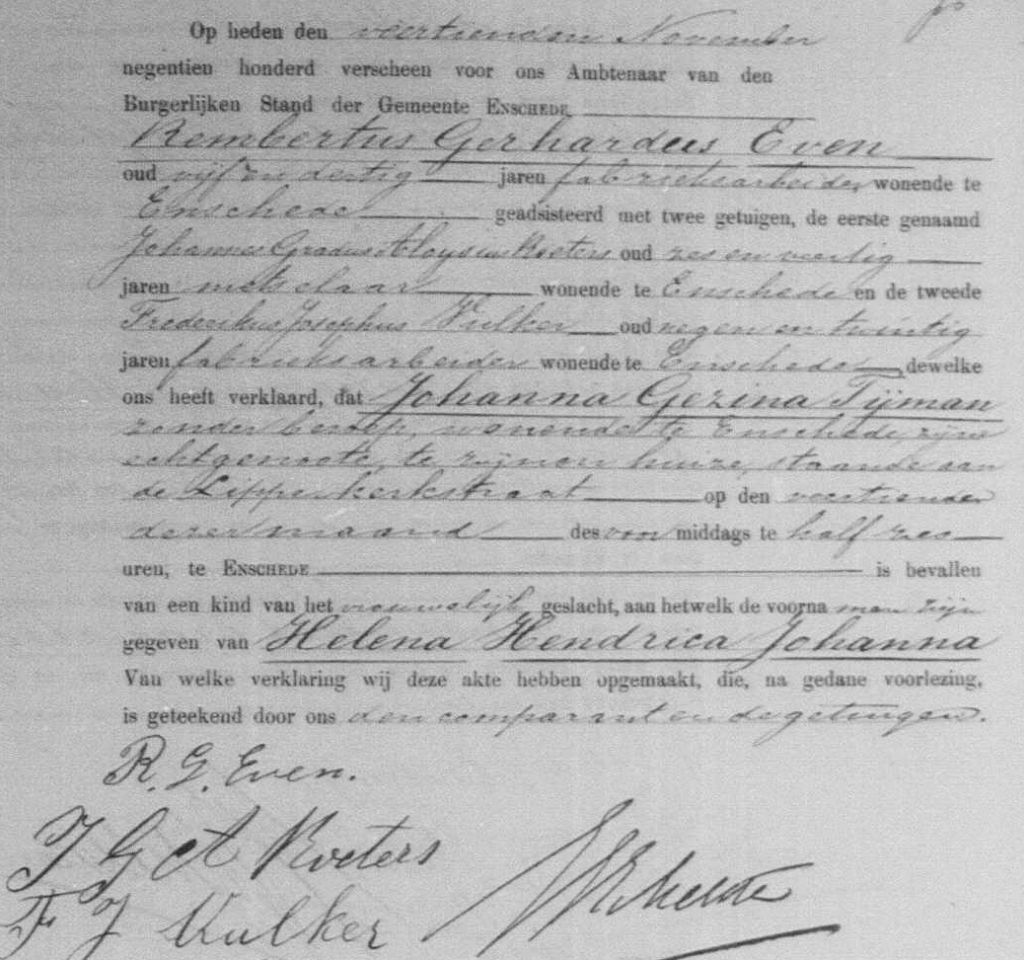 Op heden den veertienden November
negentien honderd verscheen voor ons Ambtenaar van den
Burgerlijken Stand der Gemeente ENSCHEDE
Rembertus Gerhardus Even
oud vijf en dertig jaren fabrieksarbeider wonende te
Enschede geadsisteerd met twee getuigen, de eerste genaamd
Johannes Gradus Aloysius Roeters oud zes en veertig
jaren metselaar wonende te Enschede en de tweede
Frederikus Josephus Kulker oud negen en twintig
jaren fabrieksarbeider wonende te Enschede dewelke
ons heeft verklaard, dat Johanna Gezina Tijman
zonder beroep, wonende te Enschede, zijne
echtgenoote, te zijnen huize, staande aan
de Lipperkerkstraat op den veertienden
dezer maand des voor middags te half zes
uren, te ENSCHEDE is bevallen
van een kind van het vrouwelijk geslacht, aan hetwelk de voorna men zijn
gegeven van Helena Hendrica Johanna
Van welke verklaring wij deze akte hebben opgemaakt, die, na gedane voorlezing,
is geteekend door ons den comparant en de getuigen.
R. G. Even.
J G A Roeters
F J Kulker